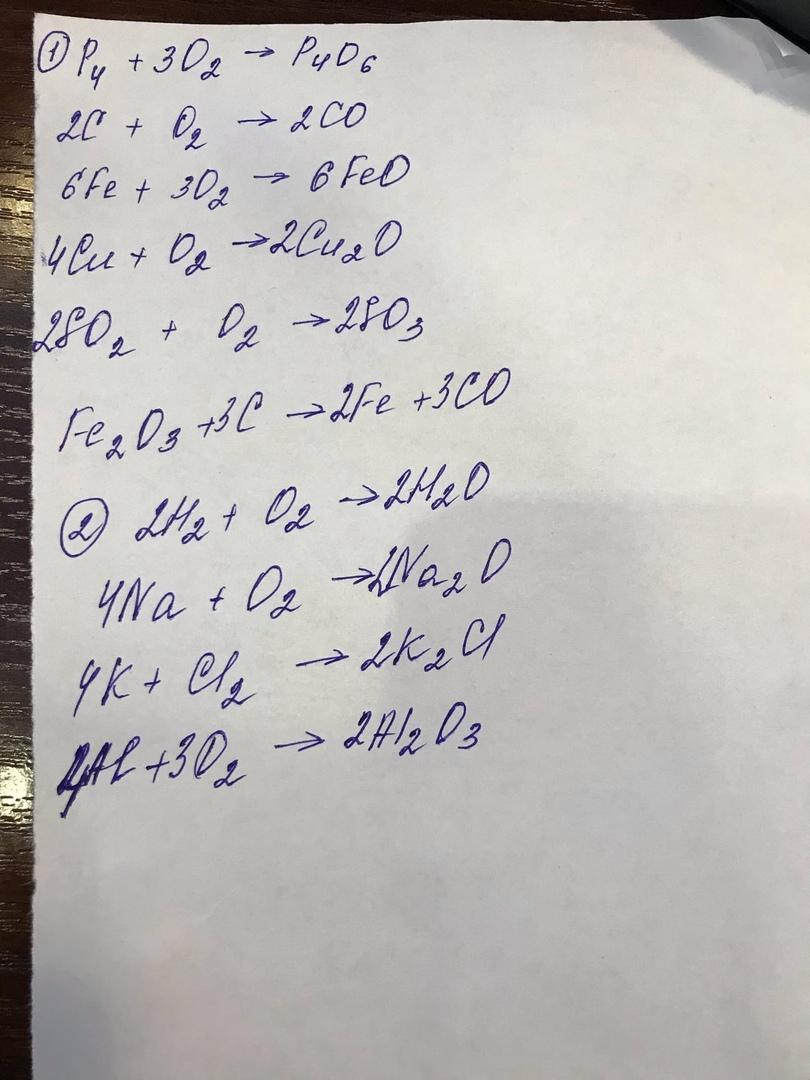 ① P₄ + 3O₂ → P₄O₆
2C + O₂ → 2CO
6Fe + 3O₂ → 6FeO
4Cu + O₂ → 2Cu₂O
2SO₂ + O₂ → 2SO₃
Fe₂O₃ + 3C → 2Fe + 3CO
② 2H₂ + O₂ → 2H₂O
4Na + O₂ → 2Na₂O
4K + Cl₂ → 2K₂Cl
4Al + 3O₂ → 2Al₂O₃